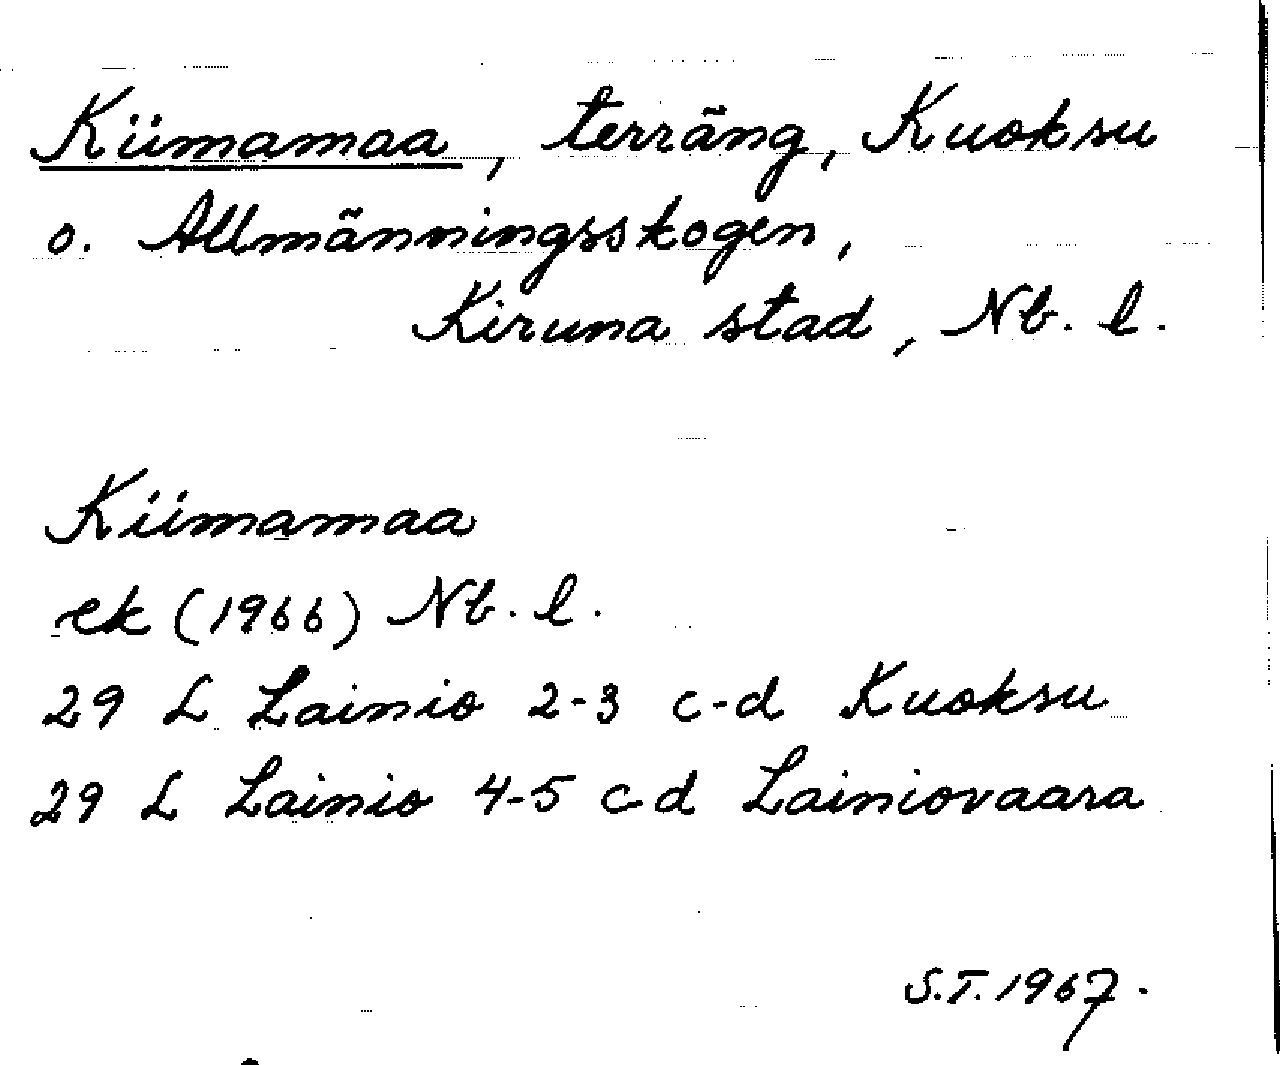 Kiimamaa, terräng, Kuoksu
o. Allmänningsskogen,
Kiruna stad, Nb. l.
Kiimamaa
ek (1966) Nb. l.
29 L Lainio 2-3 c-d Kuoksu
29 L Lainio 4-5 c-d Lainiovaara
S.T. 1967.